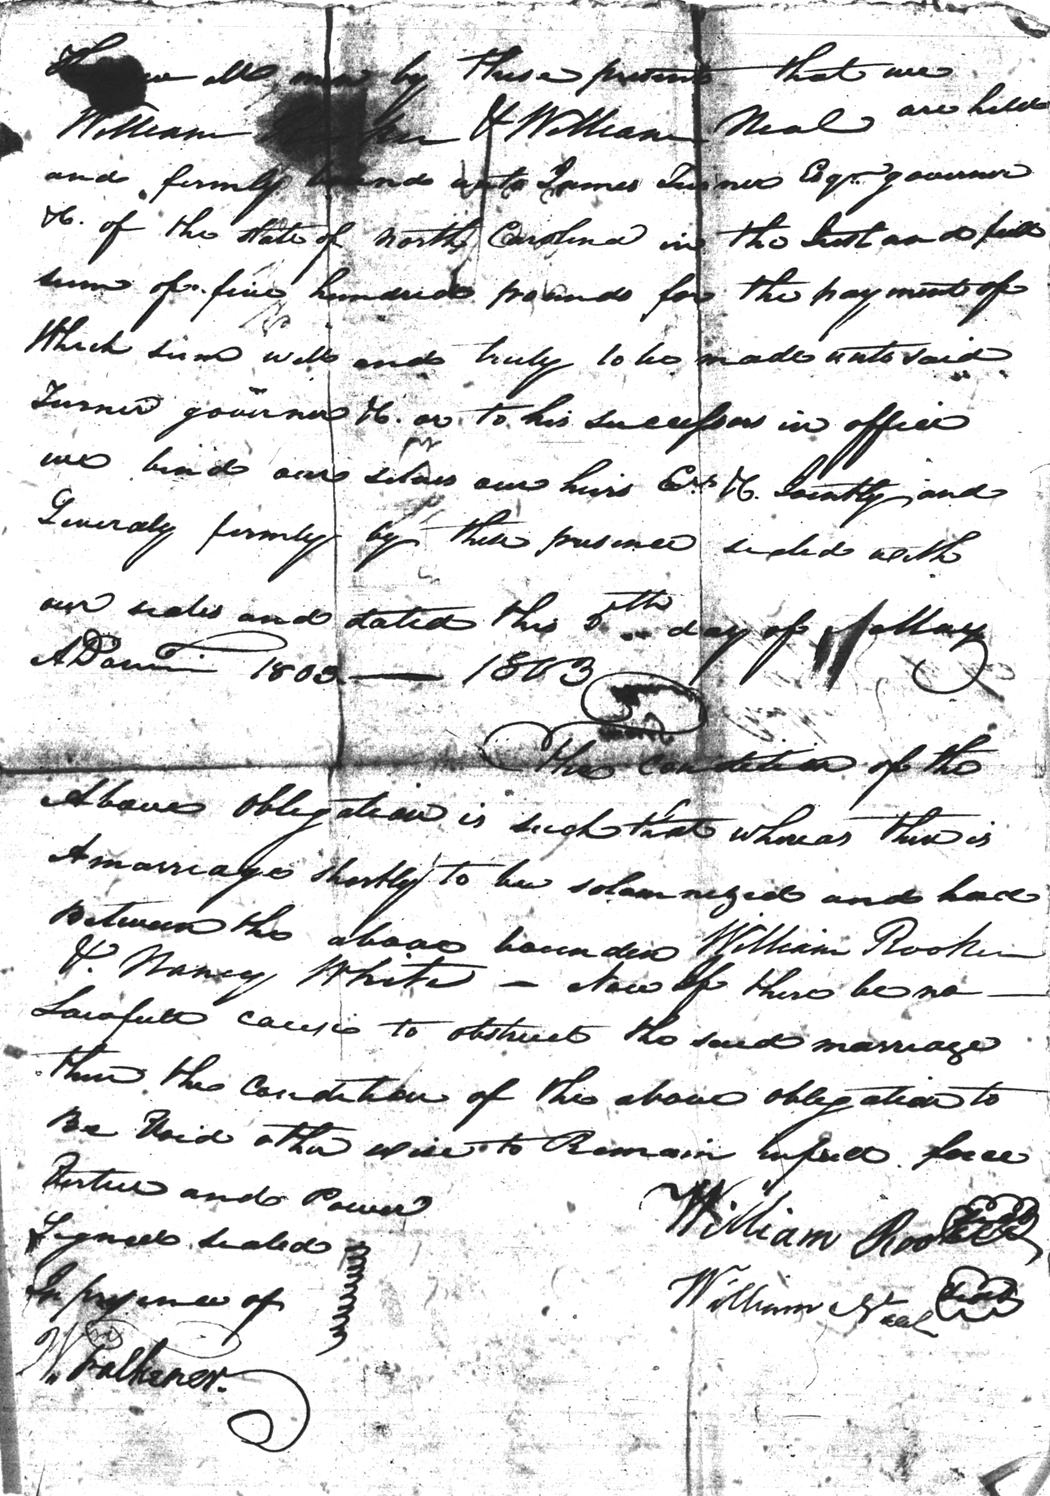 Know all men by these presents that we
William Rooker & William Neal are held
and firmly bound unto James Turner Esqr. governor
&c. of the state of North Carolina in the Just and full
sum of five hundred pounds for the payment of
Which sum well and truly to be made unto said
Turner governor &c. or to his successors in office
we bind our selves our heirs Exrs &c. Jointly and
Severaly firmly by these presence sealed with
our seales and dated this 5th day of May
A Domini 1803 — 1803
The condition of the
Above obligation is such that whereas there is
A marriage shortly to be solamnezed and had
Between the above bounden William Rooker
&. Nancy White — Now If there be no —
Lawfull cause to obstruct the said marriage
then the condition of the above obligation to
Be Void other wise to Remain In full force
Virtue and Power
Signed sealed
In presence of
William Rooker Seal
William Neal Seal
W. Falkener.